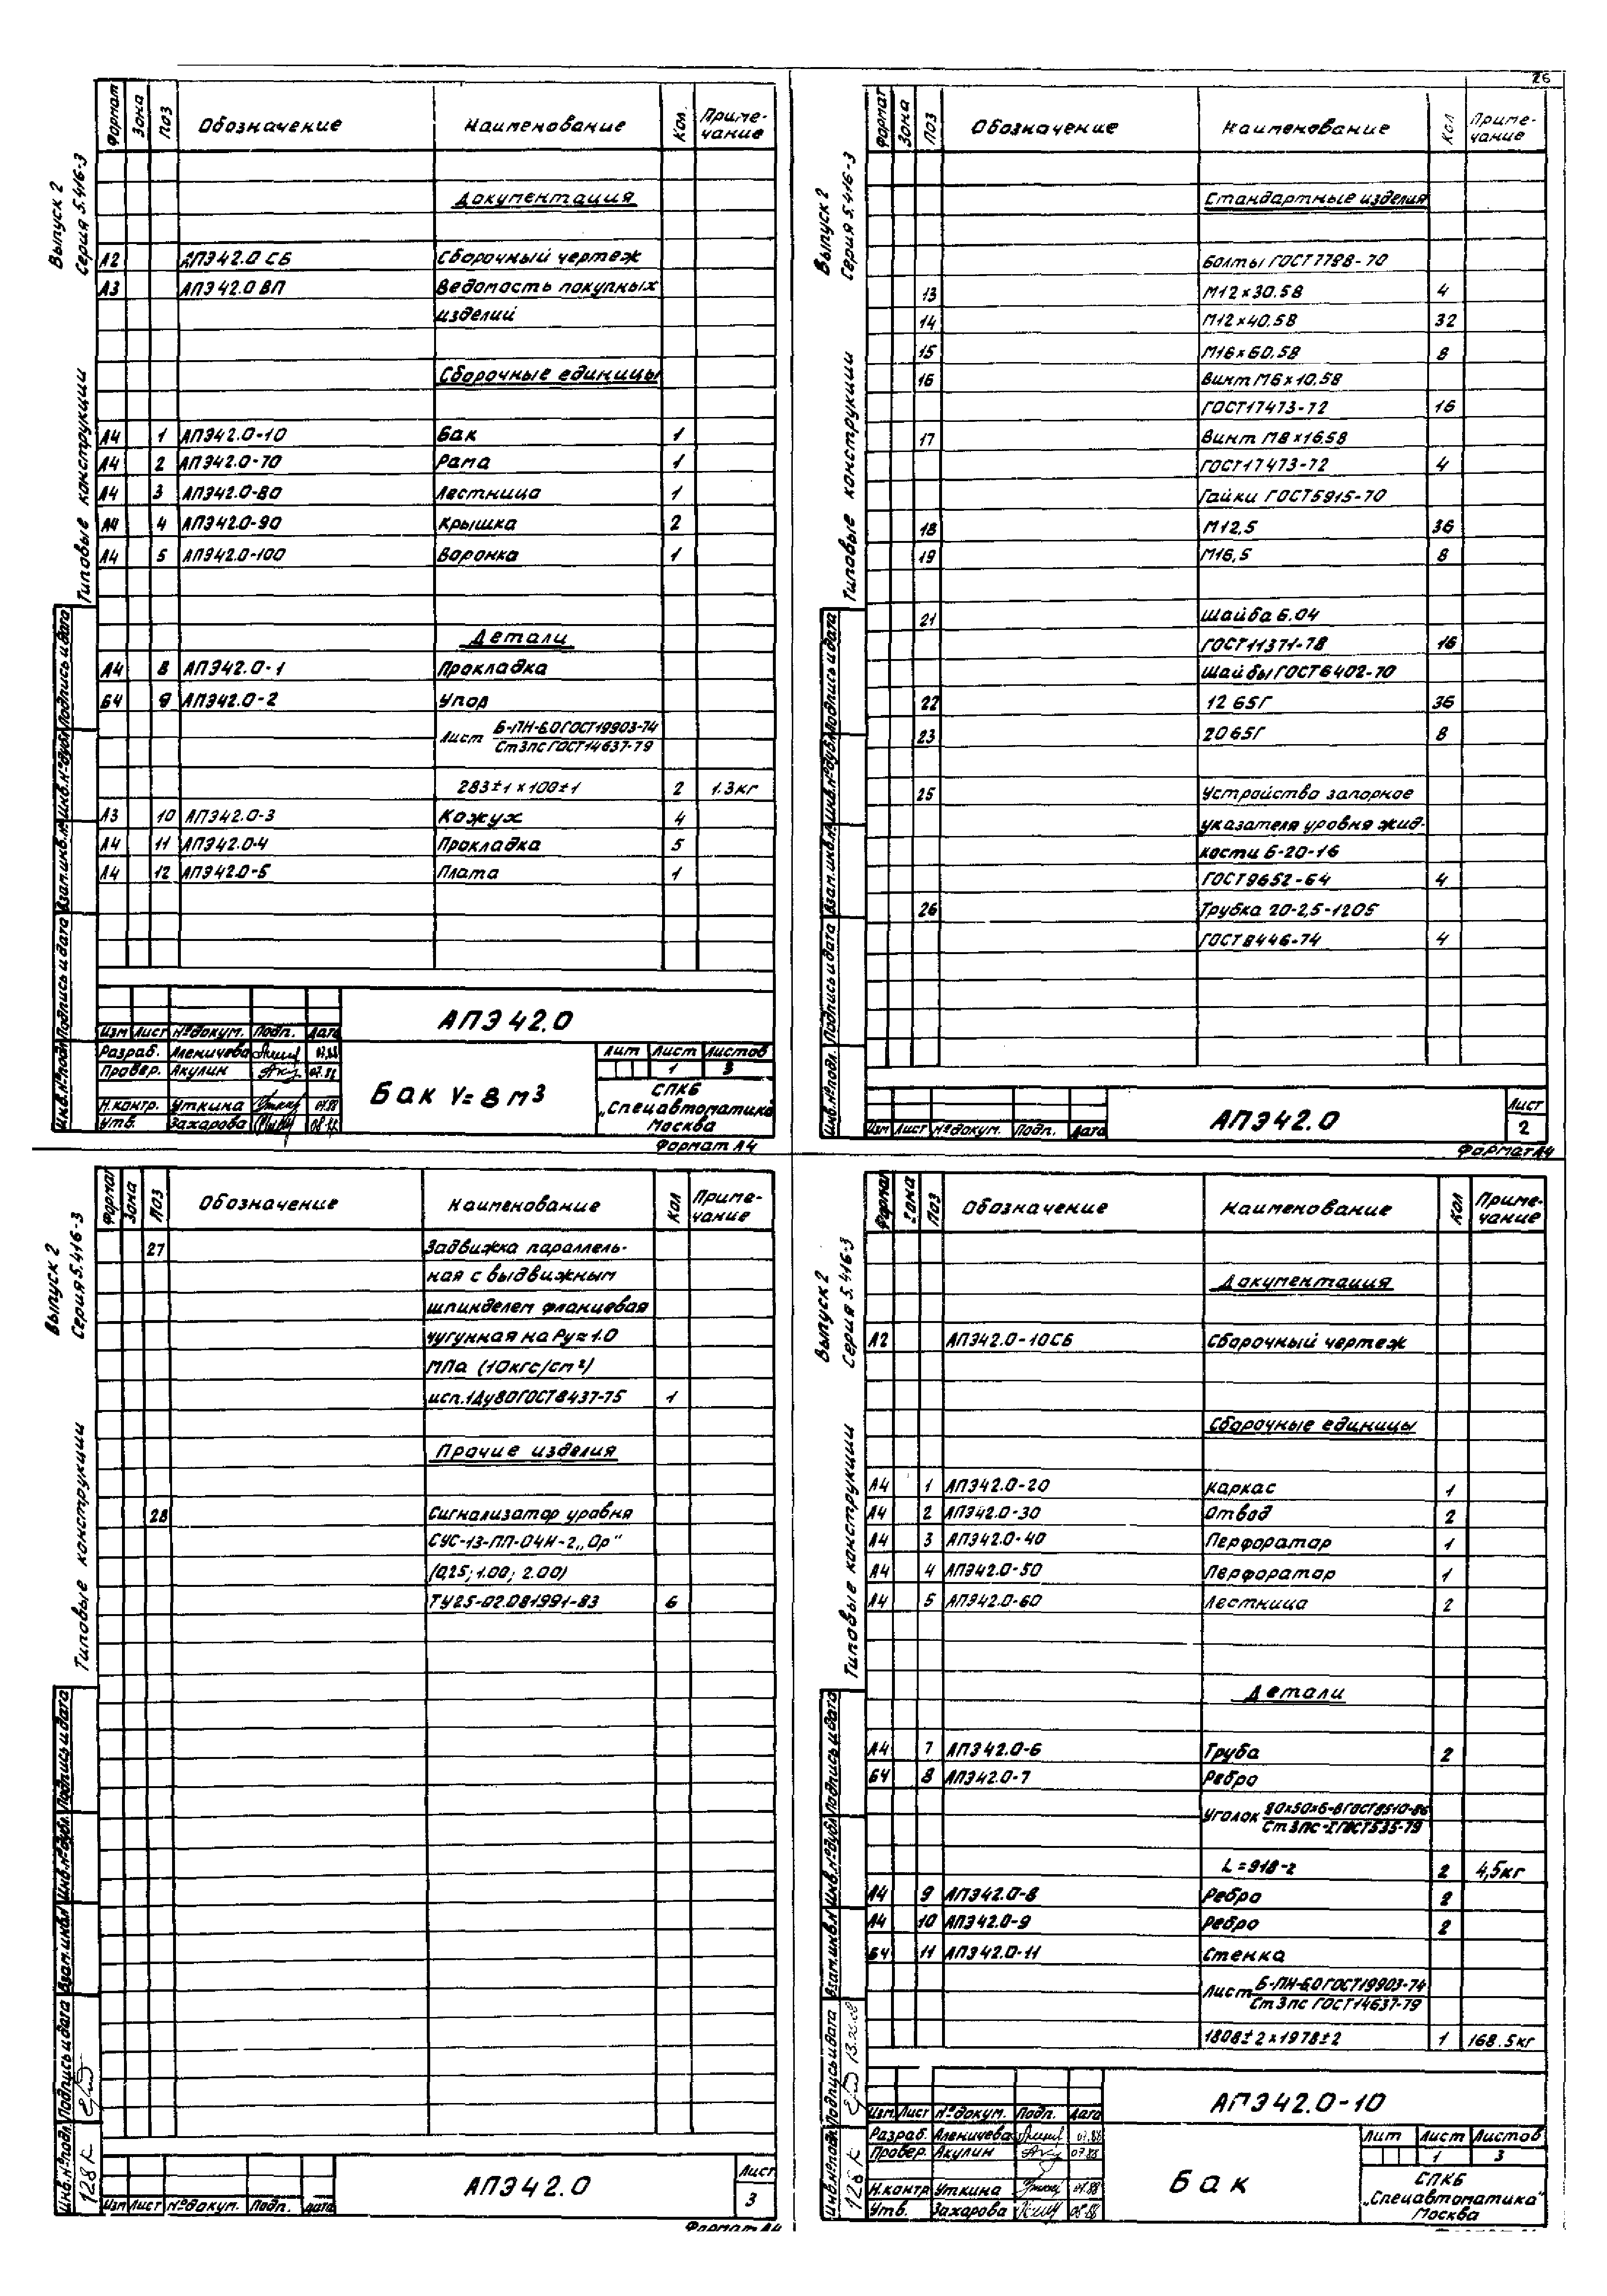 26
Выпуск 2
Серия 5.416-3
Типовые конструкции
Формат Зона Поз Обозначение Наименование Кол. Приме-
чание
Документация
А2 АПЭ42.0 СБ Сборочный чертеж
А3 АПЭ42.0 ВП Ведомость покупных
изделий
Сборочные единицы
А4 1 АПЭ42.0-10 Бак 1
А4 2 АПЭ42.0-70 Рама 1
А4 3 АПЭ42.0-80 Лестница 1
А4 4 АПЭ42.0-90 Крышка 2
А4 5 АПЭ42.0-100 Воронка 1
Детали
А4 8 АПЭ42.0-1 Прокладка
Б4 9 АПЭ42.0-2 Упор
Лист Б-ПН-6.0 ГОСТ19903-74
Ст3пс ГОСТ14637-79
283±1×100±1 2 1.3кг
А3 10 АПЭ42.0-3 Кожух 4
А4 11 АПЭ42.0-4 Прокладка 5
А4 12 АПЭ42.0-5 Плата 1
Инв.№подл. Подпись и дата Взам.инв.№ Инв.№дубл. Подпись и дата
АПЭ 42.0
Изм Лист №докум. Подп. Дата
Разраб. Аленичева 07.88
Провер. Акулин 07.88
Н.контр. Уткина 07.88
Утв. Захарова 08.88
Бак V=8 м³
Лит Лист Листов
1 3
СПКБ
„Спецавтоматика"
Москва
Формат А4
Выпуск 2
Серия 5.416-3
Типовые конструкции
Формат Зона Поз Обозначение Наименование Кол Приме-
чание
Стандартные изделия
Болты ГОСТ7798-70
13 М12×30.58 4
14 М12×40.58 32
15 М16×60.58 8
16 Винт М6×10.58
ГОСТ17473-72 16
17 Винт М8×16.58
ГОСТ17473-72 4
Гайки ГОСТ5915-70
18 М12,5 36
19 М16,5 8
21 Шайба 6.04
ГОСТ11371-78 16
Шайбы ГОСТ6402-70
22 12 65Г 36
23 20 65Г 8
25 Устройство запорное
указателя уровня жид-
кости Б-20-16
ГОСТ9652-64 4
26 Трубка 20-2,5-1205
ГОСТ8446-74 4
Инв.№подл. Подпись и дата Взам.инв.№ Инв.№дубл. Подпись и дата
Изм Лист №докум. Подп. Дата
АПЭ42.0
Лист
2
Формат А4
Выпуск 2
Серия 5.416-3
Типовые конструкции
Формат Зона Поз Обозначение Наименование Кол Приме-
чание
27 Задвижка параллель-
ная с выдвижным
шпинделем фланцевая
чугунная на Ру=1.0
МПа (10кгс/см²)
исп.1Ду80ГОСТ8437-75 1
Прочие изделия
28 Сигнализатор уровня
СУС-13-ПП-04Н-2„Ор"
(0,25; 1.00; 2.00)
ТУ25-02.081991-83 6
Инв.№подл. Подпись и дата Взам.инв.№ Инв.№дубл. Подпись и дата
128
Изм Лист №докум. Подп. Дата
АПЭ42.0
Лист
3
Формат А4
Выпуск 2
Серия 5.416-3
Типовые конструкции
Формат Зона Поз Обозначение Наименование Кол Приме-
чание
Документация
А2 АПЭ42.0-10СБ Сборочный чертеж
Сборочные единицы
А4 1 АПЭ42.0-20 Каркас 1
А4 2 АПЭ42.0-30 Отвод 2
А4 3 АПЭ42.0-40 Перфоратор 1
А4 4 АПЭ42.0-50 Перфоратор 1
А4 5 АПЭ42.0-60 Лестница 2
Детали
А4 7 АПЭ42.0-6 Труба 2
Б4 8 АПЭ42.0-7 Ребро
Уголок 80×50×6-В ГОСТ8510-86
Ст3пс-I ГОСТ535-79
L=918-2 2 4,5кг
А4 9 АПЭ42.0-8 Ребро 2
А4 10 АПЭ42.0-9 Ребро 2
Б4 11 АПЭ42.0-11 Стенка
Лист Б-ПН-6.0 ГОСТ19903-74
Ст3пс ГОСТ14637-79
1808±2×1978±2 1 168.5кг
Инв.№подл. Подпись и дата Взам.инв.№ Инв.№дубл. Подпись и дата
128
АПЭ42.0-10
Изм Лист №докум. Подп. Дата
Разраб. Аленичева 07.88
Провер. Акулин 07.88
Н.контр Уткина 07.88
Утв. Захарова 08.88
Бак
Лит Лист Листов
1 3
СПКБ
„Спецавтоматика"
Москва